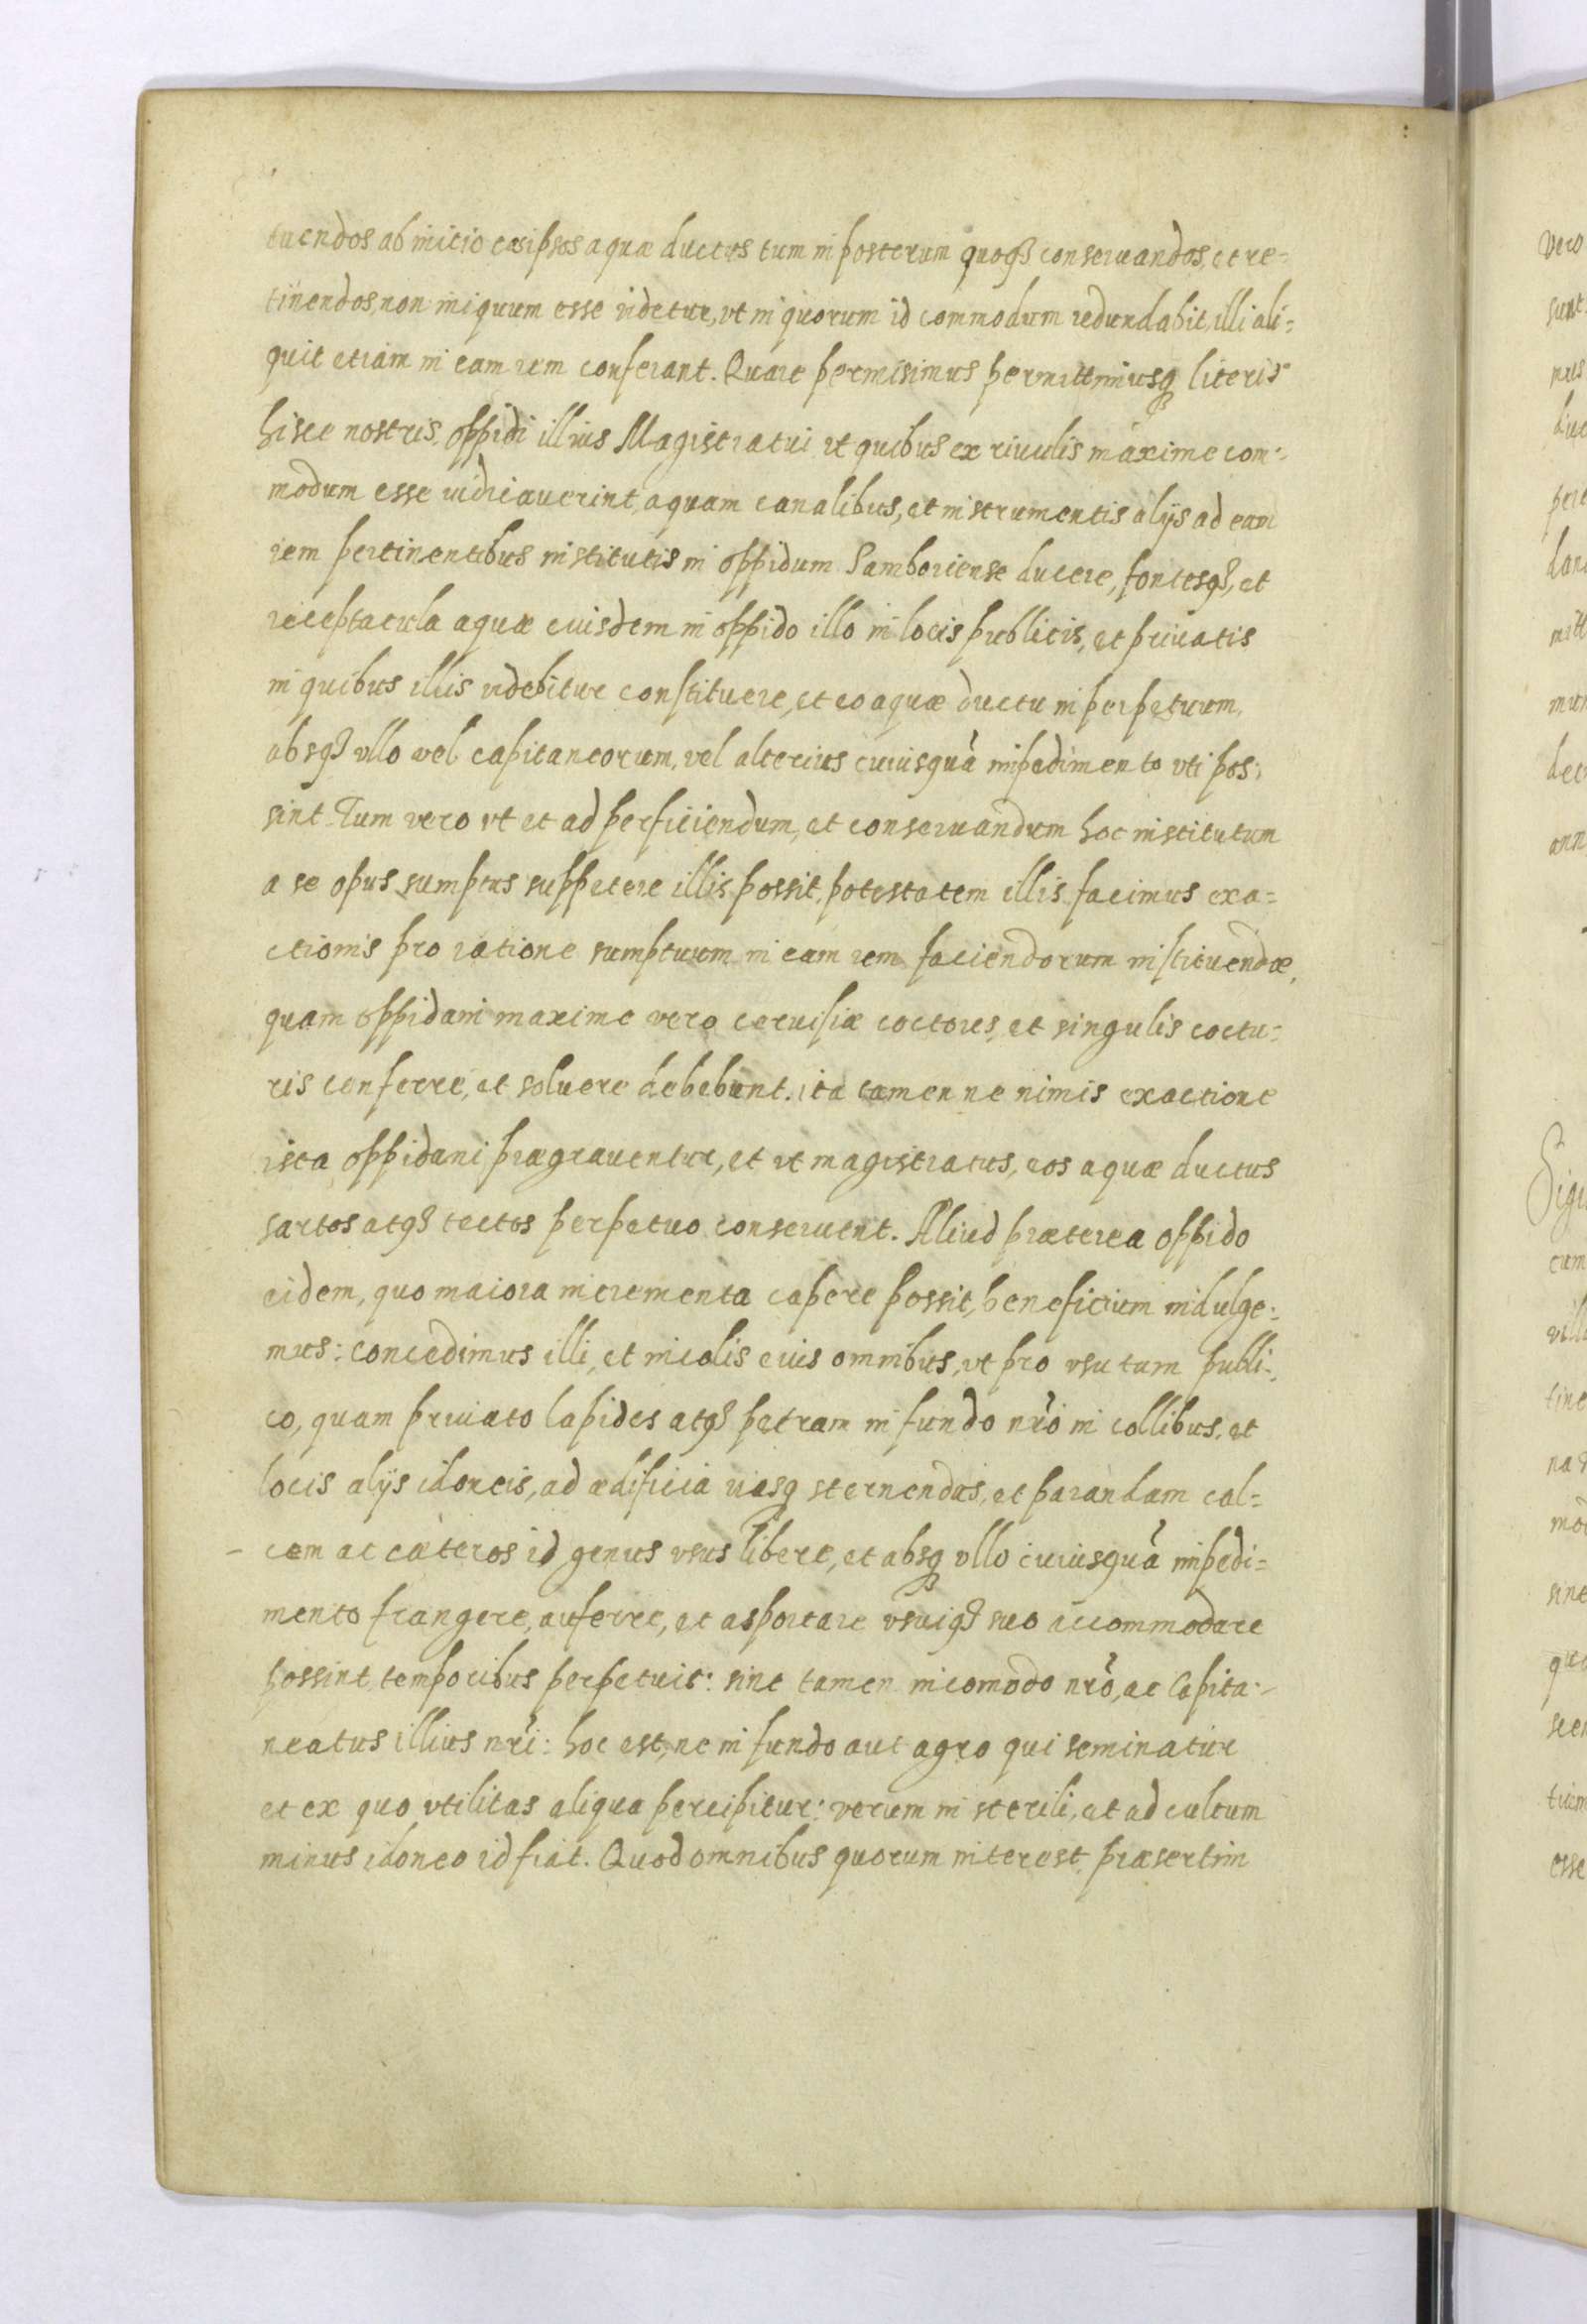 tuendos ab initio eos ipsos aquæ ductus tum in posterum quoqȝ conseruandos, et re=
tinendos, non iniquum esse videtur, vt in quorum id commodum redundabit, illi ali=
quit etiam in eam rem conferant. Quare permisimus permittimusqȝ literis
hisce nostris, oppidi illius Magistratui vt quibus ex riuulis maxime com=
modum esse iudicauerint, aquam canalibus, et instrumentis alijs ad eam
rem pertinentibus institutis in oppidum Samboriense ducere, fontesqȝ, et
receptacula aquæ euisdem in oppido illo in locis publicis, et priuatis
in quibus illis videbitur constituere, et eo aquæ ductu in perpetuum,
absqȝ vllo vel capitaneorum, vel alterius cuiusquà impedimento vti pos=
sint. Tum vero vt et ad perficiendum, et conseruandum hoc institutum
a se opus sumptus suppetere illis possit, potestatem illis facimus exa=
ctionis pro ratione sumptuum in eam rem faciendorum instituendæ,
quam oppidani maxime vero ceruisiæ coctores, et singulis coctu=
ris conferre, et soluere debebunt. ita tamen ne nimis exactione
ista oppidani prægrauentur, et vt magistratus, eos aquæ ductus
sartos atqȝ tectos perpetuo conseruent. Aliud præterea oppido
eidem, quo maiora incrementa capere possit, beneficium indulge=
mus: concedimus illi, et incolis eius omnibus, vt pro vsu tam publi=
co, quam priuato lapides atqȝ petram in fundo nr̃o in collibus, et
locis alijs idoneis, ad ædificia viasqȝ sternendas, et parandam cal=
- cem ac cæteros id genus vsus libere, et absqȝ vllo cuiusquà impedi=
mento frangere, auferre, et asportare vsuiqȝ suo accommodare
possint temporibus perpetuis: sine tamen incomodo nr̃o, ac Capita=
neatus illius nr̃i: hoc est, ne in fundo aut agro qui seminatur
et ex quo vtilitas aliqua percipitur: verum in sterili, et ad cultum
minus idoneo id fiat. Quod omnibus quorum interest præsertim